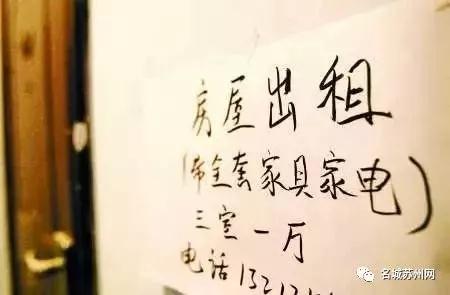 房屋出租
(带全套家具家电)
三室一厅
电话 13212
名城苏州网